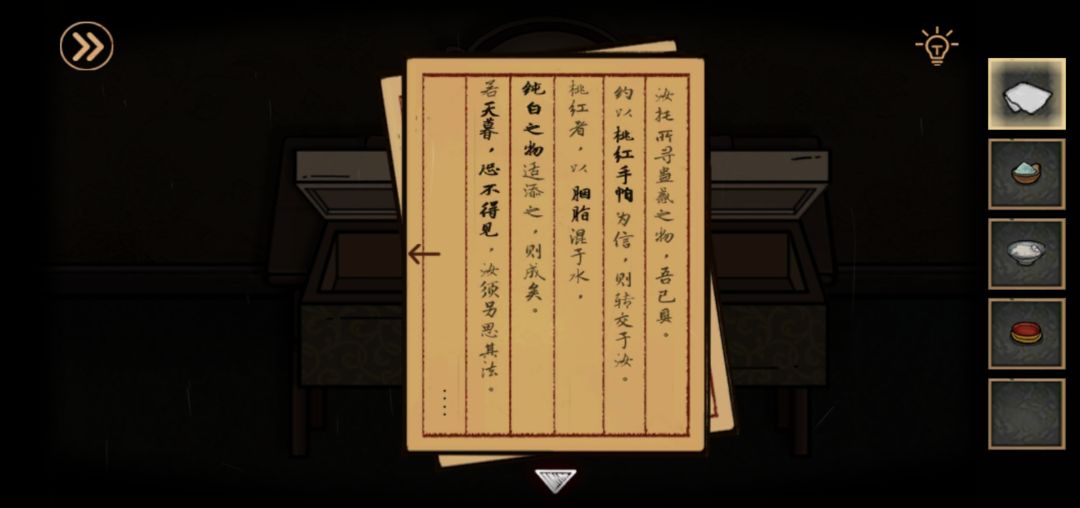 汝托所寻蛊蒸之物，吾已具。
约以桃红手帕为信，则转交于汝。
桃红者，以胭脂混于水，
纯白之物适添之，则成矣。
若天暮，恐不得见，汝须另思其法。
....